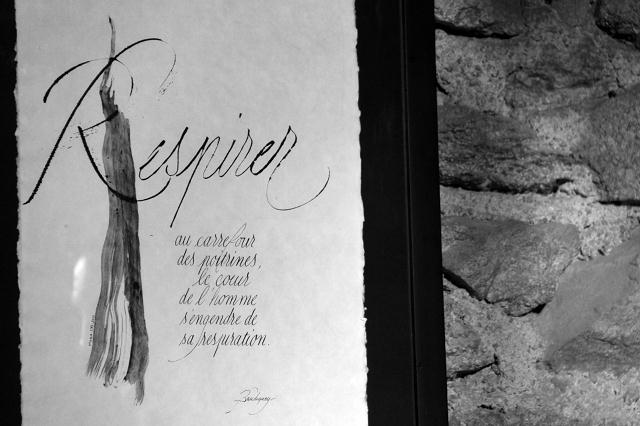 Respirer
au carrefour
des poitrines,
le cœur
de l'homme
s'engendre de
sa respiration.